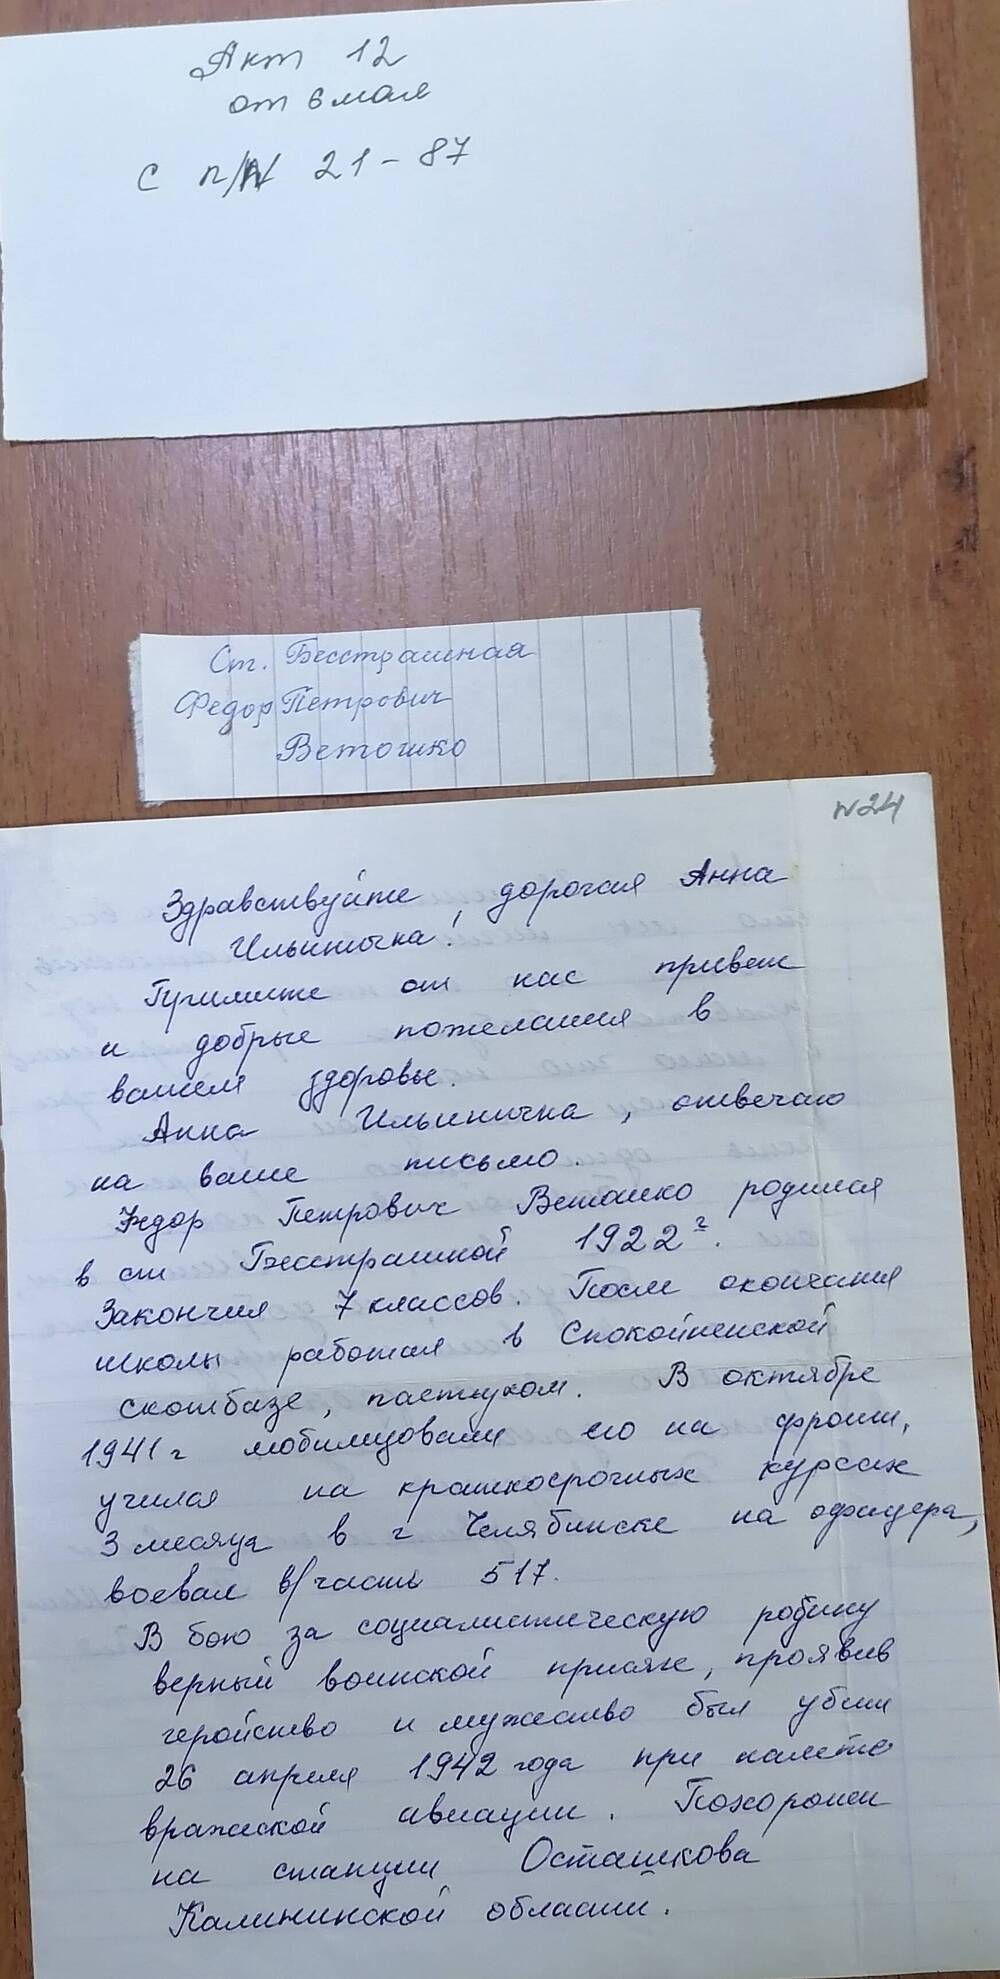 Акт 12
от 6 мая
с п/N 21-87
Ст. Бесстрашная
Федор Петрович
Ветошко
N24
Здравствуйте, дорогая Анна
Ильинична!
Примите от нас привет
и добрые пожелания в
вашем здоровье.
Анна Ильинична, отвечаю
на ваше письмо.
Федор Петрович Ветошко родился
в ст Бесстрашной 1922 г.
Закончил 7 классов. После окончания
школы работал в Спокойненской
скотбазе, пастухом. В октябре
1941 г мобилизовали его на фронт,
учился на краткосрочных курсах
3 месяца в г Челябинске на офицера,
воевал в/часть 517.
В бою за социалистическую родину
верный воинской присяге, проявив
геройство и мужество был убит
26 апреля 1942 года при налете
вражеской авиации. Похоронен
на станции Осташкова
Калининской области.